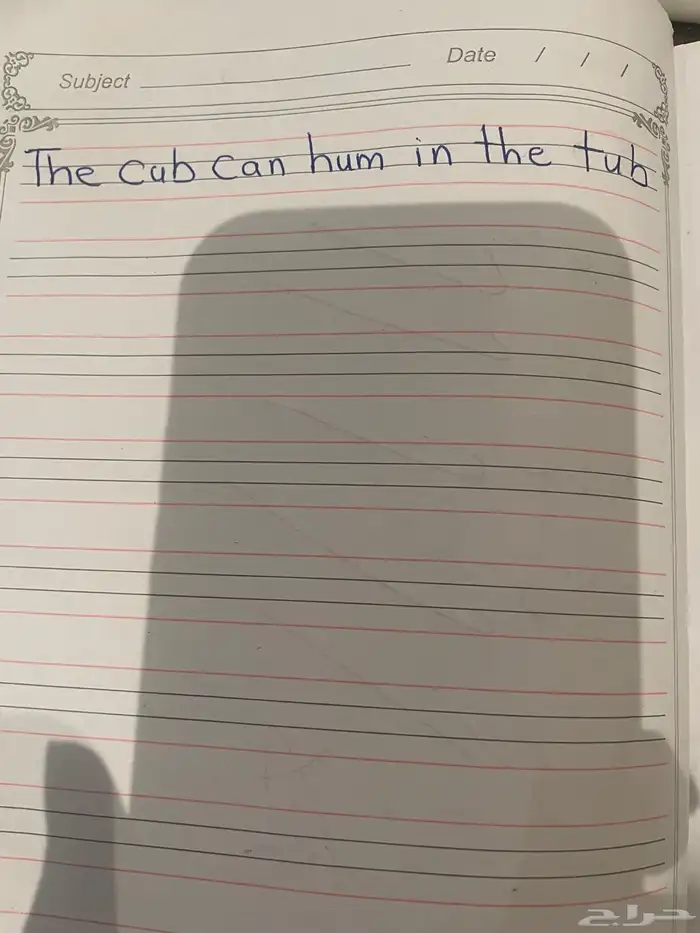 Subject
Date / / /
The cub can hum in the tub
حراج